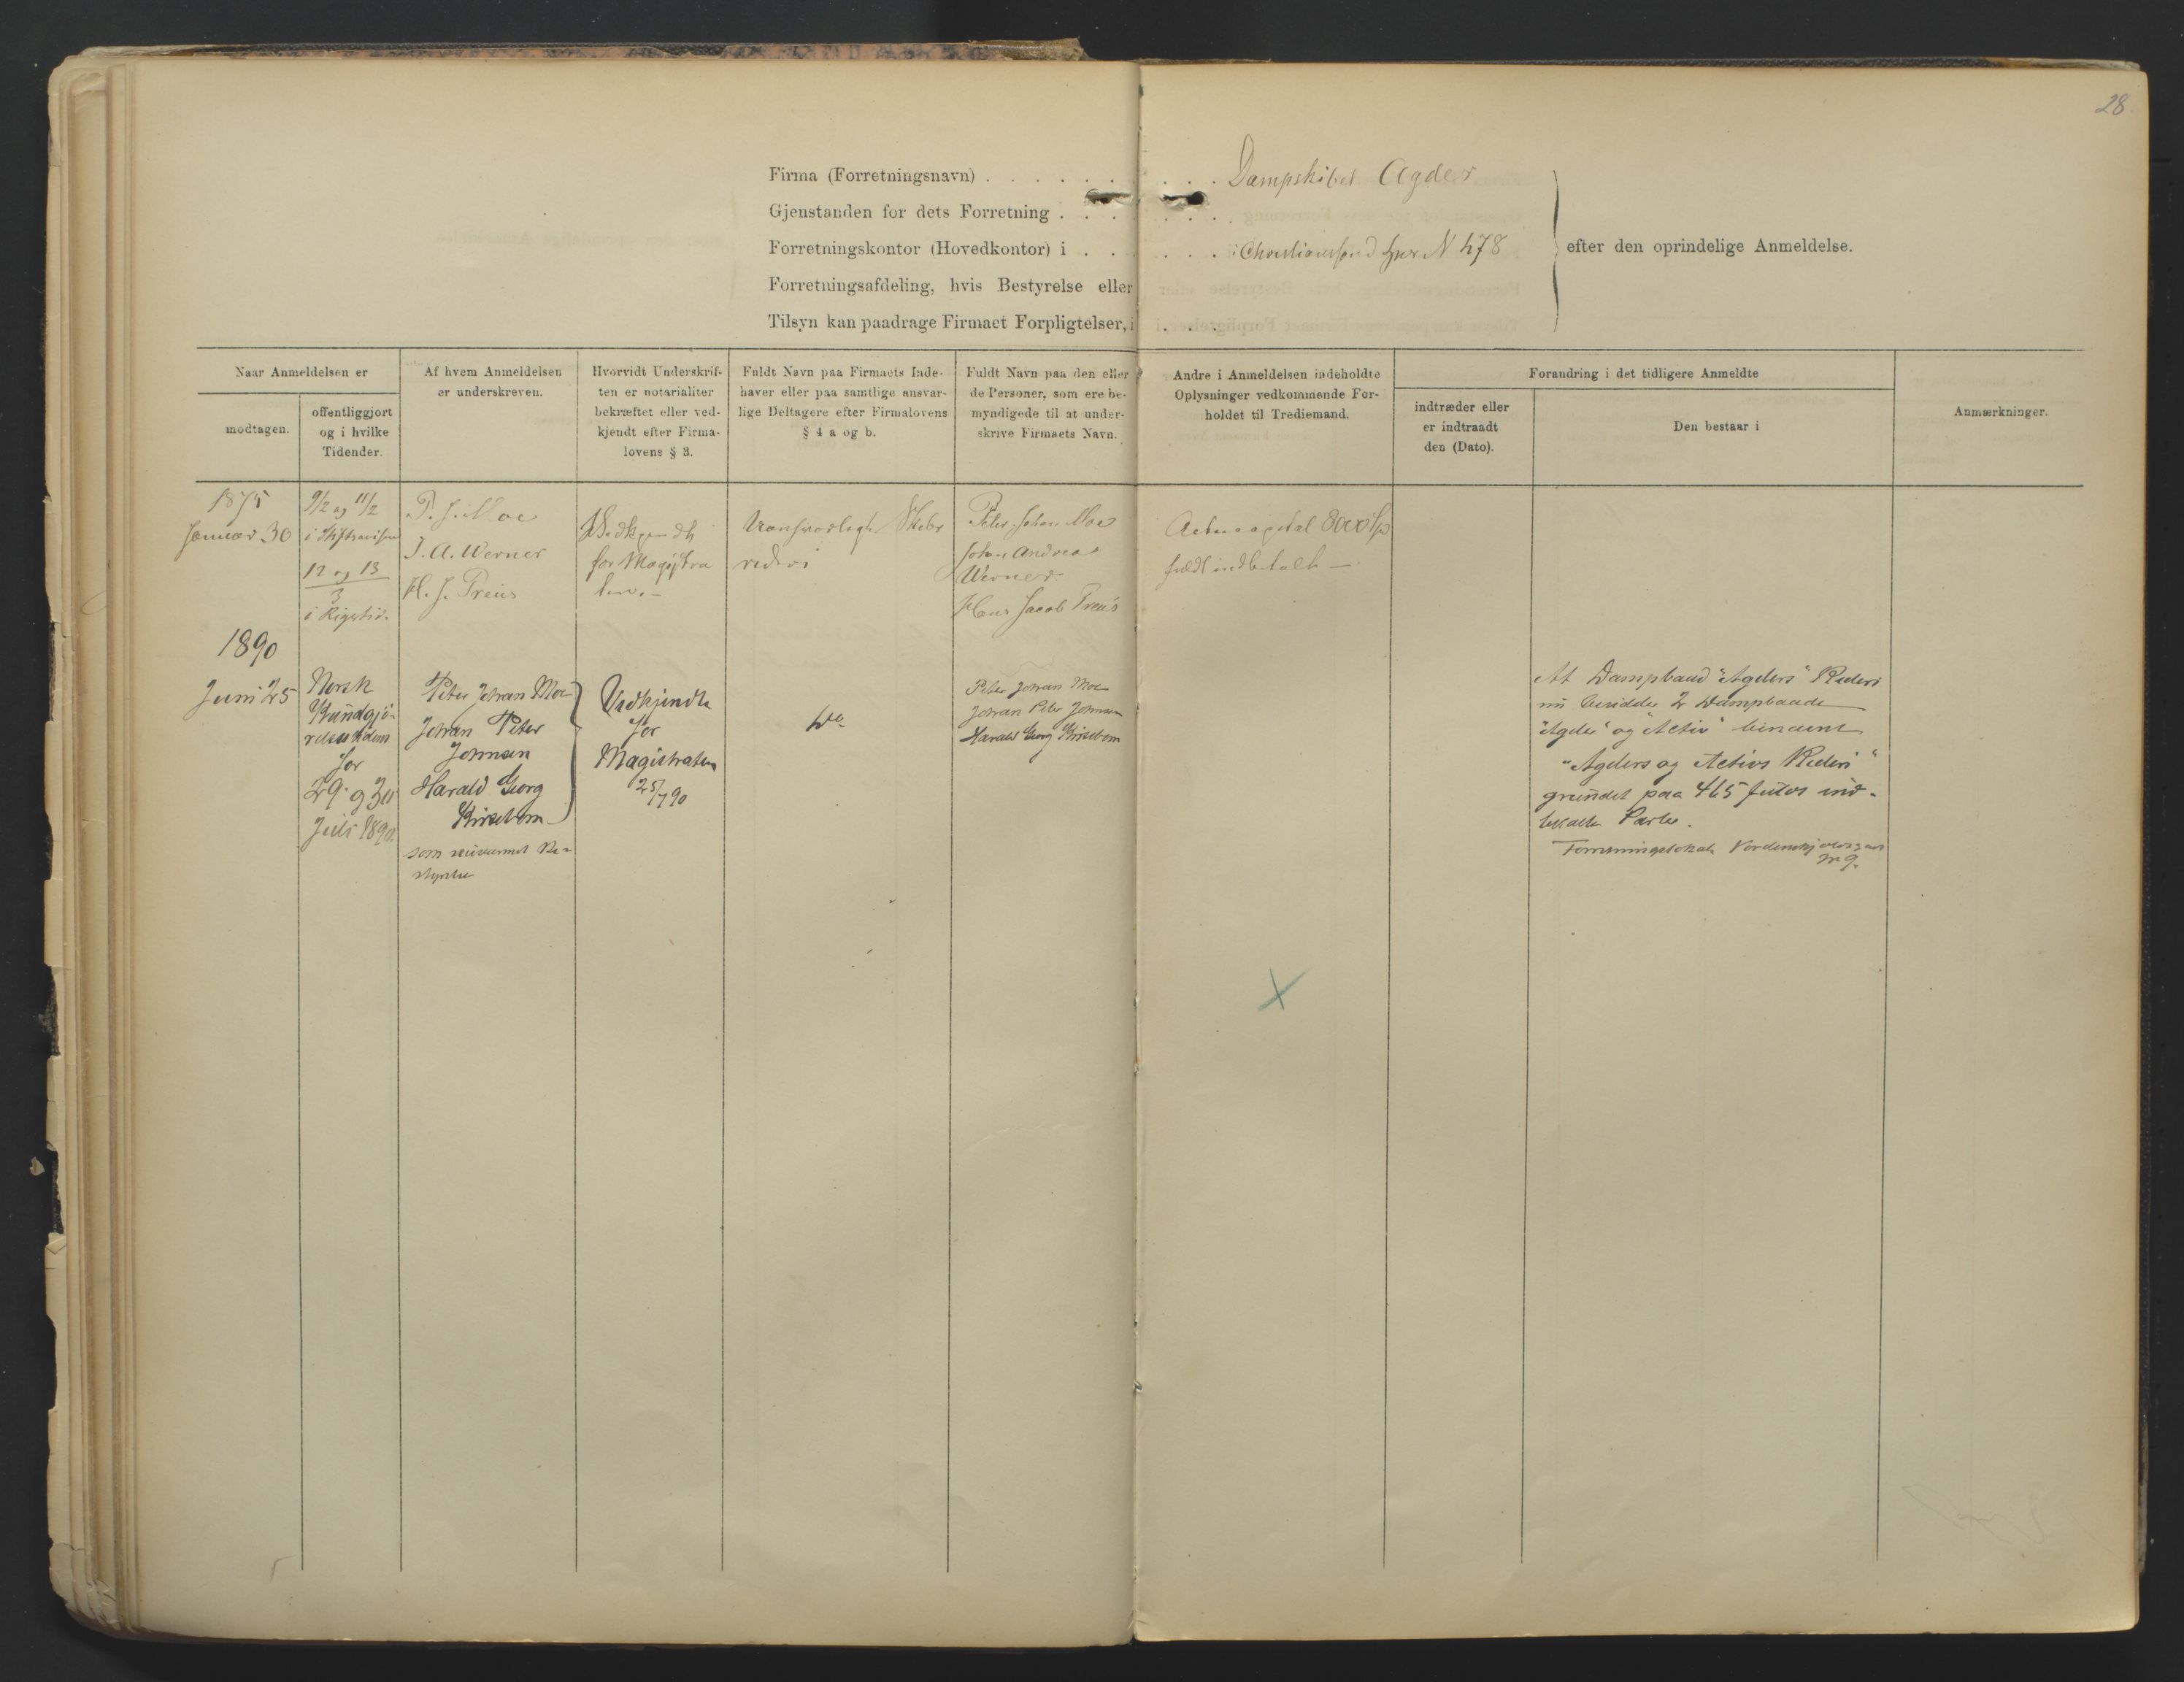 28.
Firma (Forretningsnavn) . . . . . . . . . . Dampskibet Agder
Gjenstanden for dets Forretning . . . . . . .
Forretningskontor (Hovedkontor) i . . . . . . . i Christianssand N 478
Forretningsafdeling, hvis Bestyrelse eller
Tilsyn kan paadrage Firmaet Forpligtelser, i . . .
efter den oprindelige Anmeldelse.
Naar Anmeldelsen er
modtagen.
offentliggjort
og i hvilke
Tidender.
Af hvem Anmeldelsen
er underskreven.
Hvorvidt Underskrif-
ten er notarialiter
bekræftet eller ved-
kjendt efter Firma-
lovens § 3.
Fuldt Navn paa Firmaets Inde-
haver eller paa samtlige ansvar-
lige Deltagere efter Firmalovens
§ 4 a og b.
Fuldt Navn paa den eller
de Personer, som ere be-
myndigede til at under-
skrive Firmaets Navn.
Andre i Anmeldelsen indeholdte
Oplysninger vedkommende For-
holdet til Trediemand.
Forandring i det tidligere Anmeldte
indtræder eller
er indtraadt
den (Dato).
Den bestaar i
Anmærkninger.
1875
Januar 30
9/2 og 11/2
i Stiftsavisen
12 og 13
3
i Rigstid.
P. J. Moe
J. A. Werner
H. J. Preus
Vedkjendt
for Magistra
ten. -
Uansvarlegt Skibs
rederi
Peter Johan Moe
Johan Andreas
Werner.
Hans Jacob Preus
Actiecapital 8000 Sp
fuldt indbetalt -
1890
Juni 25
Norsk
Kundgjø-
relsestidende
for
29 og 30
Juli 1890.
Peter Johan Moe
Johan Peter
Johnsen
Harald Georg
Kirsebom
som nuværende Be-
styrelse
Vedkjendte
for
Magistraten
25/7 90
Do
Peter Johan Moe
Johan Peter Johnsen
Harald Georg Kirsebom
At Dampbaad "Agders" Rederi
nu besidder 2 Dampbaade
"Agder" og "Activ" benævnt
"Agders og Activs Rederi"
grundet paa 465 fuldt ind-
betalte Parter.
Forretningslokale
№ 9.